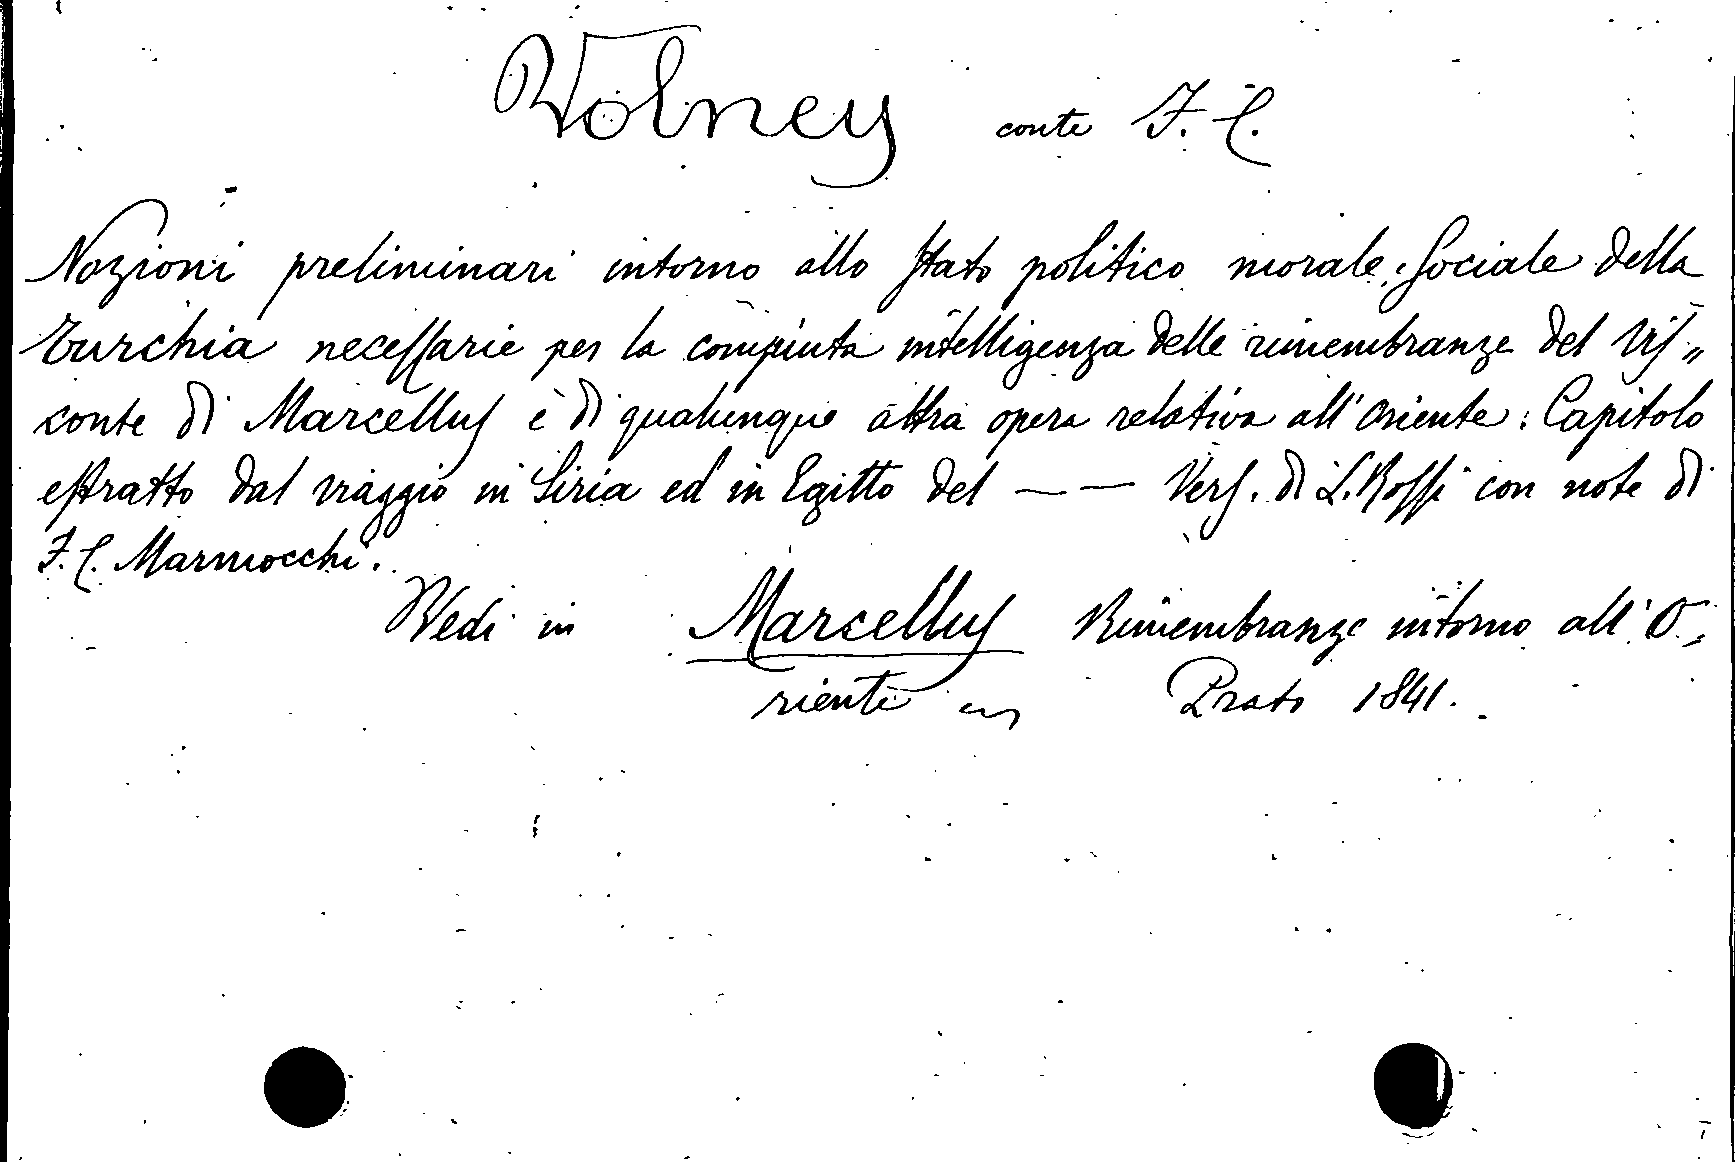 Volney conte F. C.
Nozioni preliminari intorno allo Stato politico morale, Sociale della
Turchia necessarie per la compiuta intelligenza delle rimembranze del Vis„
conte di Marcellus e di qualunque altra opera relativa all'oriente: Capitolo
estratto dal viaggio in Siria ed in Egitto del — — Vers. di L. Rossi con note di
F. C. Marmocchi.
Vedi in Marcellus Rimembranze intorno all'O„
riente Prato 1841.